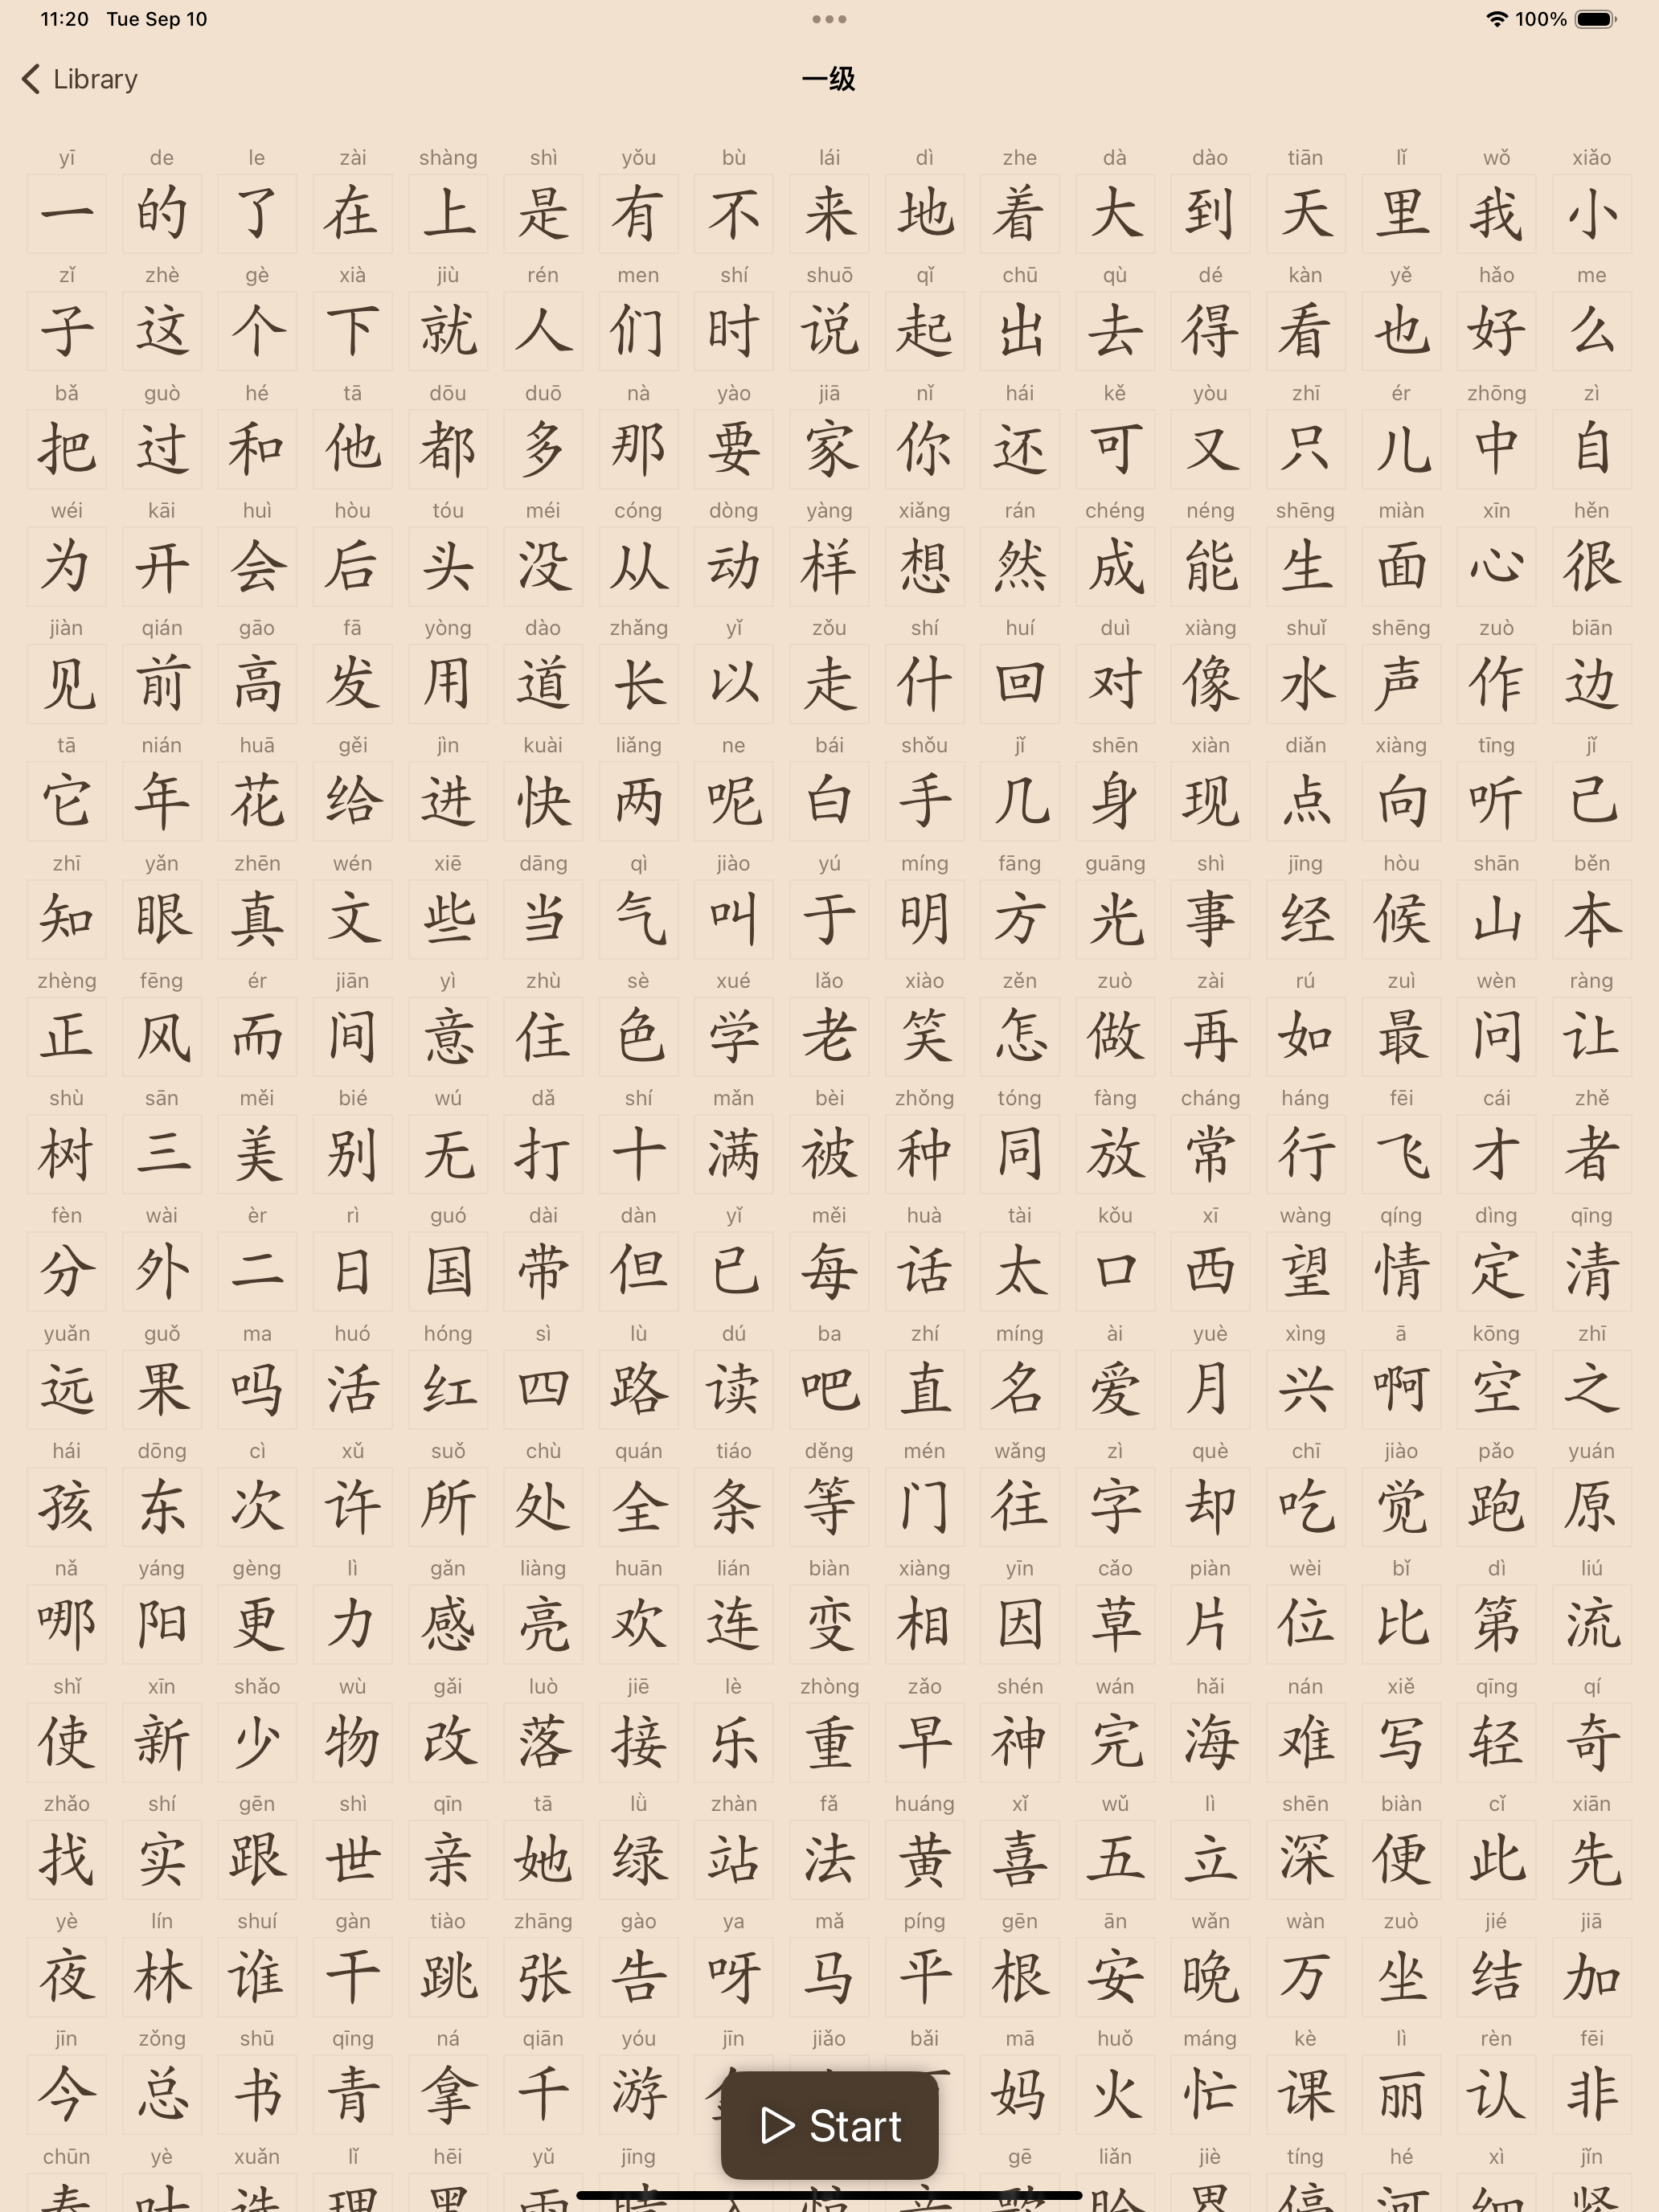 11:20 Tue Sep 10 100%
Library 一级
yī de le zài shàng shì yǒu bù lái dì zhe dà dào tiān lǐ wǒ xiǎo
一 的 了 在 上 是 有 不 来 地 着 大 到 天 里 我 小
zǐ zhè gè xià jiù rén men shí shuō qǐ chū qù dé kàn yě hǎo me
子 这 个 下 就 人 们 时 说 起 出 去 得 看 也 好 么
bǎ guò hé tā dōu duō nà yào jiā nǐ hái kě yòu zhī ér zhōng zì
把 过 和 他 都 多 那 要 家 你 还 可 又 只 儿 中 自
wéi kāi huì hòu tóu méi cóng dòng yàng xiǎng rán chéng néng shēng miàn xīn hěn
为 开 会 后 头 没 从 动 样 想 然 成 能 生 面 心 很
jiàn qián gāo fā yòng dào zhǎng yǐ zǒu shí huí duì xiàng shuǐ shēng zuò biān
见 前 高 发 用 道 长 以 走 什 回 对 像 水 声 作 边
tā nián huā gěi jìn kuài liǎng ne bái shǒu jǐ shēn xiàn diǎn xiàng tīng jǐ
它 年 花 给 进 快 两 呢 白 手 几 身 现 点 向 听 己
zhī yǎn zhēn wén xiē dāng qì jiào yú míng fāng guāng shì jīng hòu shān běn
知 眼 真 文 些 当 气 叫 于 明 方 光 事 经 候 山 本
zhèng fēng ér jiān yì zhù sè xué lǎo xiào zěn zuò zài rú zuì wèn ràng
正 风 而 间 意 住 色 学 老 笑 怎 做 再 如 最 问 让
shù sān měi bié wú dǎ shí mǎn bèi zhǒng tóng fàng cháng háng fēi cái zhě
树 三 美 别 无 打 十 满 被 种 同 放 常 行 飞 才 者
fèn wài èr rì guó dài dàn yǐ měi huà tài kǒu xī wàng qíng dìng qīng
分 外 二 日 国 带 但 已 每 话 太 口 西 望 情 定 清
yuǎn guǒ ma huó hóng sì lù dú ba zhí míng ài yuè xìng ā kōng zhī
远 果 吗 活 红 四 路 读 吧 直 名 爱 月 兴 啊 空 之
hái dōng cì xǔ suǒ chù quán tiáo děng mén wǎng zì què chī jiào pǎo yuán
孩 东 次 许 所 处 全 条 等 门 往 字 却 吃 觉 跑 原
nǎ yáng gèng lì gǎn liàng huān lián biàn xiàng yīn cǎo piàn wèi bǐ dì liú
哪 阳 更 力 感 亮 欢 连 变 相 因 草 片 位 比 第 流
shǐ xīn shǎo wù gǎi luò jiē lè zhòng zǎo shén wán hǎi nán xiě qīng qí
使 新 少 物 改 落 接 乐 重 早 神 完 海 难 写 轻 奇
zhǎo shí gēn shì qīn tā lǜ zhàn fǎ huáng xǐ wǔ lì shēn biàn cǐ xiān
找 实 跟 世 亲 她 绿 站 法 黄 喜 五 立 深 便 此 先
yè lín shuí gàn tiào zhāng gào ya mǎ píng gēn ān wǎn wàn zuò jié jiā
夜 林 谁 干 跳 张 告 呀 马 平 根 安 晚 万 坐 结 加
jīn zǒng shū qīng ná qiān yóu jīn jiǎo bǎi mā huǒ máng kè lì rèn fēi
今 总 书 青 拿 千 游 妈 火 忙 课 丽 认 非
Start
chūn yè xuǎn lǐ hēi yǔ jīng gē liǎn jiè tíng hé xì jǐn